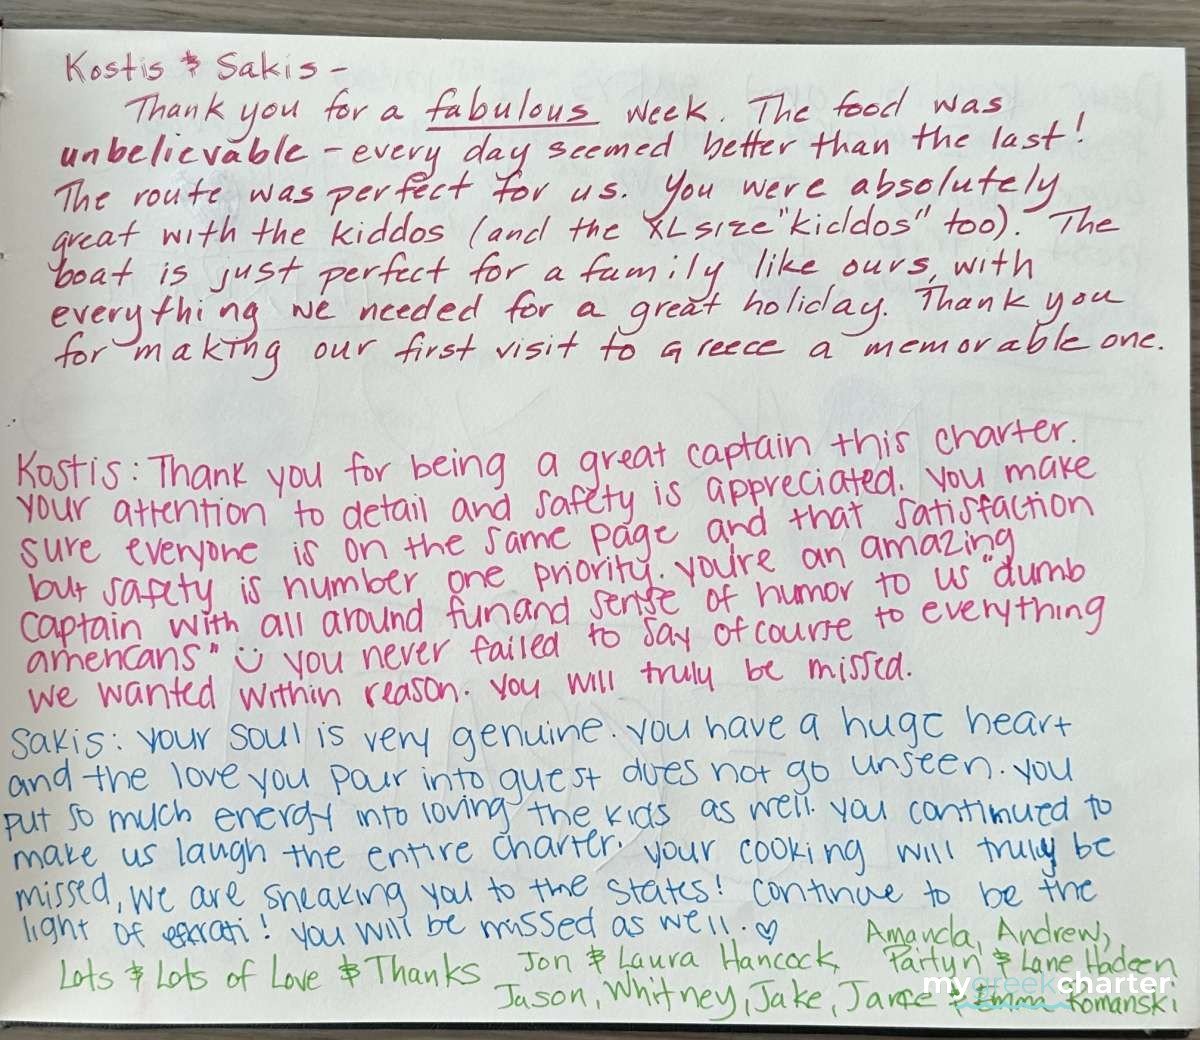 Kostis & Sakis -
Thank you for a fabulous week. The food was
unbelievable - every day seemed better than the last!
The route was perfect for us. You were absolutely
great with the kiddos (and the XL size "kiddos" too). The
boat is just perfect for a family like ours, with
everything we needed for a great holiday. Thank you
for making our first visit to Greece a memorable one.
Kostis: Thank you for being a great captain this charter.
your attention to detail and safety is appreciated. you make
sure everyone is on the same page and that satisfaction
but safety is number one priority. you're an amazing
captain with all around fun and sense of humor to us "dumb
americans" ☺ you never failed to say of course to everything
we wanted within reason. you will truly be missed.
Sakis: your soul is very genuine. you have a huge heart
and the love you pour into guest does not go unseen. you
put so much energy into loving the kids as well. you continued to
make us laugh the entire charter. your cooking will truly be
missed, we are sneaking you to the states! continue to be the
light of efcrati! you will be missed as well. ♡
Amanda, Andrew,
Lots & Lots of Love & Thanks Jon & Laura Hancock, & Lane Hadeen
Jason, Whitney, Jake, & Emma Romanski
mygreekcharter